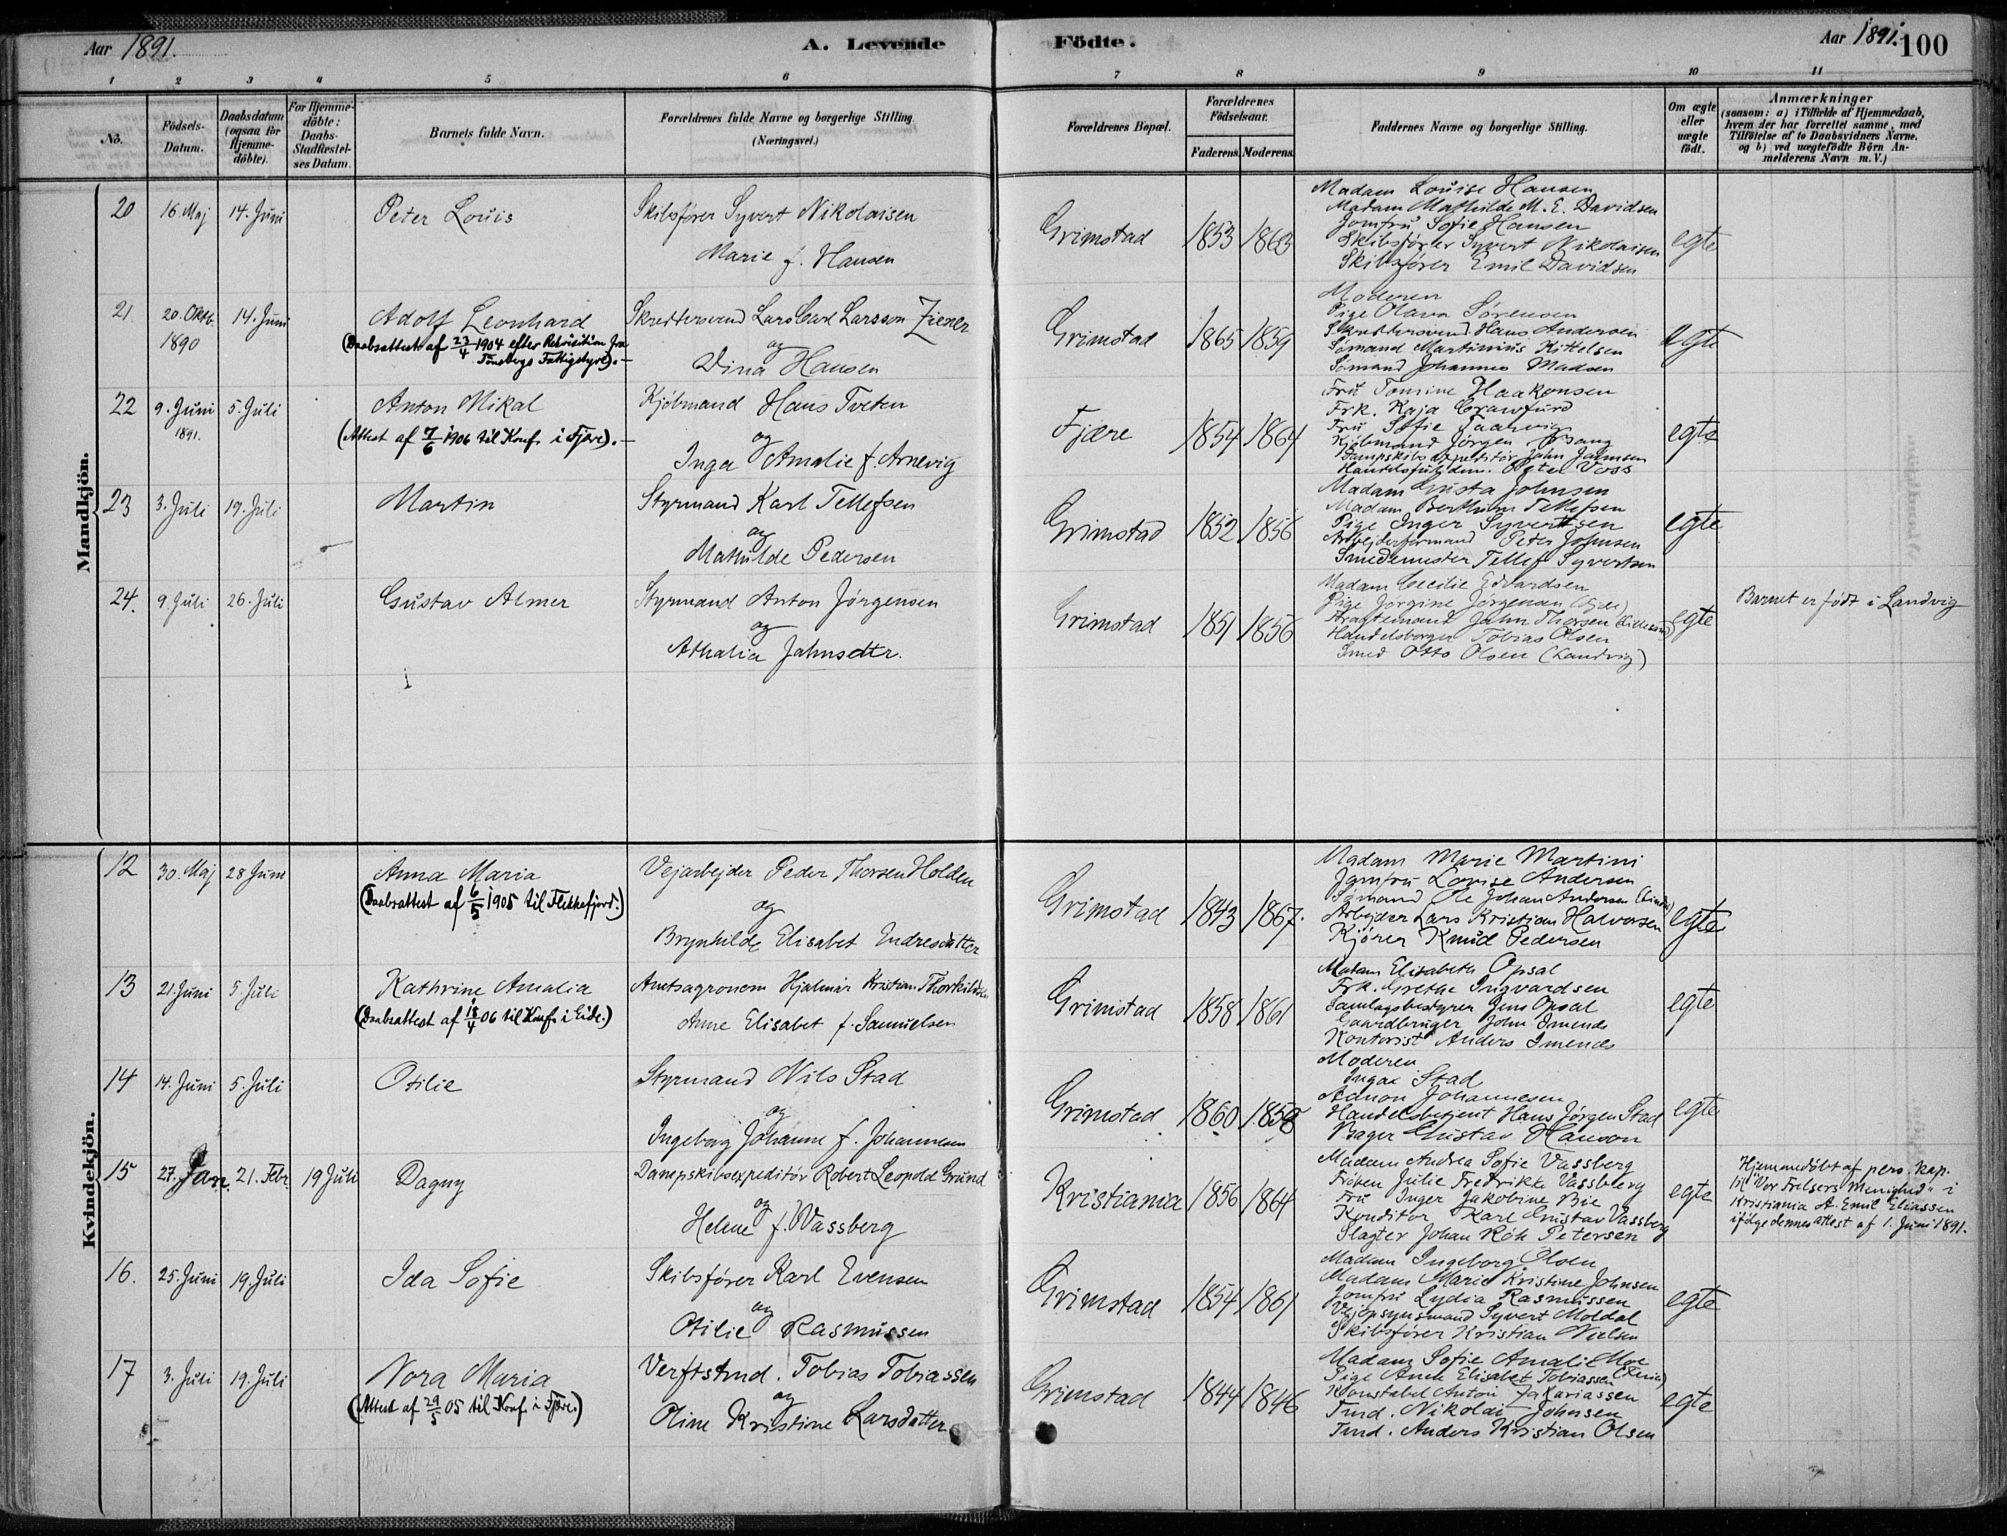 Aar 1891.
A. Levende
Födte.
Aar 1891.
100
1 2 3 4 5 6 7 8 9 10 11
No.
Födsels-Datum.
Daabsdatum (ogsaa för Hjemme-döbte).
For Hjemme-döbte: Daabs-Stadfæstel-ses Datum.
Barnets fulde Navn.
Forældrenes fulde Navne og borgerlige Stilling (Næringsvei.)
Forældrenes Bopæl.
Forældrenes Födselsaar.
Faderens. Moderens.
Faddernes Navne og borgerlige Stilling.
Om ægte eller uægte födt.
Anmærkninger
(saasom: a) i Tilfælde af Hjemmedaab, hvem der har forrettet samme, med Tilföielse af to Daabsvidners Navne, og b) ved uægtefödte Börn An-melderens Navn m. V.)
Mandkjön.
20 16. Maj 14. Juni Peter Louis
Skibsfører Syvert Nikolaisen
Marie f. Hansen
Grimstad 1853 1863
Madam Louise Hansen
Madam Mathilde M. E. Davidsen
Jomfru Sofie Hansen
Skibsfører Syvert Nikolaisen
Skibsfører Emil Davidsen
egte
21. 20. Oktb. 1890 14. Juni Adolf Leonhard
(Daabsattest af 23/4 1904 efter Rekvisition fra
Tönsbergs Fattigstyre). –
Skreddersvend Lars Carl Larsson Ziener
og
Dina Hansen
Grimstad 1865 1859
Moderen
Pige Olava Sørensen
Skreddersvend Hans Andersen
Sømand Martinius Kittelsen
Sømand Johannes Madsen
egte
22 9. Juni 1891. 5. Juli Anton Mikal
(Attest af 7/6 1906 til Konf. i Fjære). –
Kjöbmand Hans Tveten
og
Inga Amalie f. Arnevig
Fjære 1854 1864
Fru Tomine Haakonsen
Frk. Kaja Crawfurd
Fru Sofie
Kjöbmand Jørgen
Dampskibsexpeditør John Jahnsen
Peter Voss
egte
23 3. Juli 19. Juli Martin
Styrmand Karl Tellefsen
og
Mathilde Pedersen
Grimstad 1852 1856
Madam Gusta Johnsen
Madam Tellefsen
Pige Inger Syvertsen
Arbejderformand Peter Johnsen
Smedemester Tellef Syvertsen
egte
24. 9. Juli 26. Juli Gustav Almer
Styrmand Anton Jørgensen
og
Athalia Jahnsdtr.
Grimstad 1851 1856
Madam Cecilie Edvardsen
Pige Jørgine Jørgensen
John Thorsen (Lillesand)
Handelsborger Tobias Olsen
Smed Otto Olsen (Landvig)
egte
Barnet er født i Landvig
Kvindekjön.
12 30. Maj 28 Juni Anna Maria
(Daabsattest af 6/5 1905 til Flekkefjord.)
Vejarbejder Peder Thorsen Holden
og
Brynhilde Elisabet Endresdatter
Grimstad 1843 1867.
Madam Marie Martini
Jomfru Lovise Andersen
Sømand Ole Johan Andersen
Arbejder Lars Kristian Halvorsen
Kjører Knud Pedersen
egte
13 21. Juni 5. Juli Kathrine Amalia
(Daabsattest af 18/4 06 til Konf. i Eide.)
Amtsagronom Hjalmar Kristian Thorkildsen
Anne Elisabet f. Samuelsen
Grimstad 1858 1861
Madam Elisabeth Opsal
Frk. Grethe Ingvardsen
Samlagsbestyrer Jens Opsal
Gaardbruger John Imenes
Kontorist Anders Imenes
egte
14 14. Juni 5. Juli Otilie
Styrmand Nils Stad
og
Ingeborg Johanne f. Johannesen
Grimstad 1860 1858
Moderen
Inga Stad
Johannesen
Handelsbetjent Hans Jørgen Stad
Bager Gustav Hanson
egte
15 27. Jan. 21. Febr. 19 Juli Dagny
Dampskibsexpeditör Robert Leopold Grund
og
Helene f. Wassberg
Kristiania 1856 1864
Madam Andrea Sofie Vassberg
Frøken Julie Fredrikke Vassberg
Fru Inger Jakobine Bie
Konditor Karl Gustav Vassberg
Slagter Johan Röh Petersen
egte
Hjemmedøbt af pers. kap.
til "Vor Frelsers Menighed" i
Kristiania A. Emil Eliassen
ifölge dennes attest af 1. Juni 1891.
16. 25. Juni 19. Juli Ida Sofie
Skibsfører Karl Evensen
og
Otilie Rasmussen
Grimstad 1854 1861
Madam Ingeborg Olsen
Madam Marie Kristine Johnsen
Jomfru Lydia Rasmussen
Vejopsynsmand Syvert Moldal
Skibsfører Kristian Nielsen
egte
17 3. Juli 19. Juli Nora Maria
(Attest af 29/5 05 til Konf. i Fjære.)
Verftstmd. Tobias Tobiassen
og
Oline Kristine Larsdatter
Grimstad 1844 1846
Madam Sofie Amalie Moe
Pige Anne Elisabet Tobiassen
Konstabel Anton Zakariassen
Tmd. Nikolai Johnsen
Tmd. Anders Kristian Olsen
egte